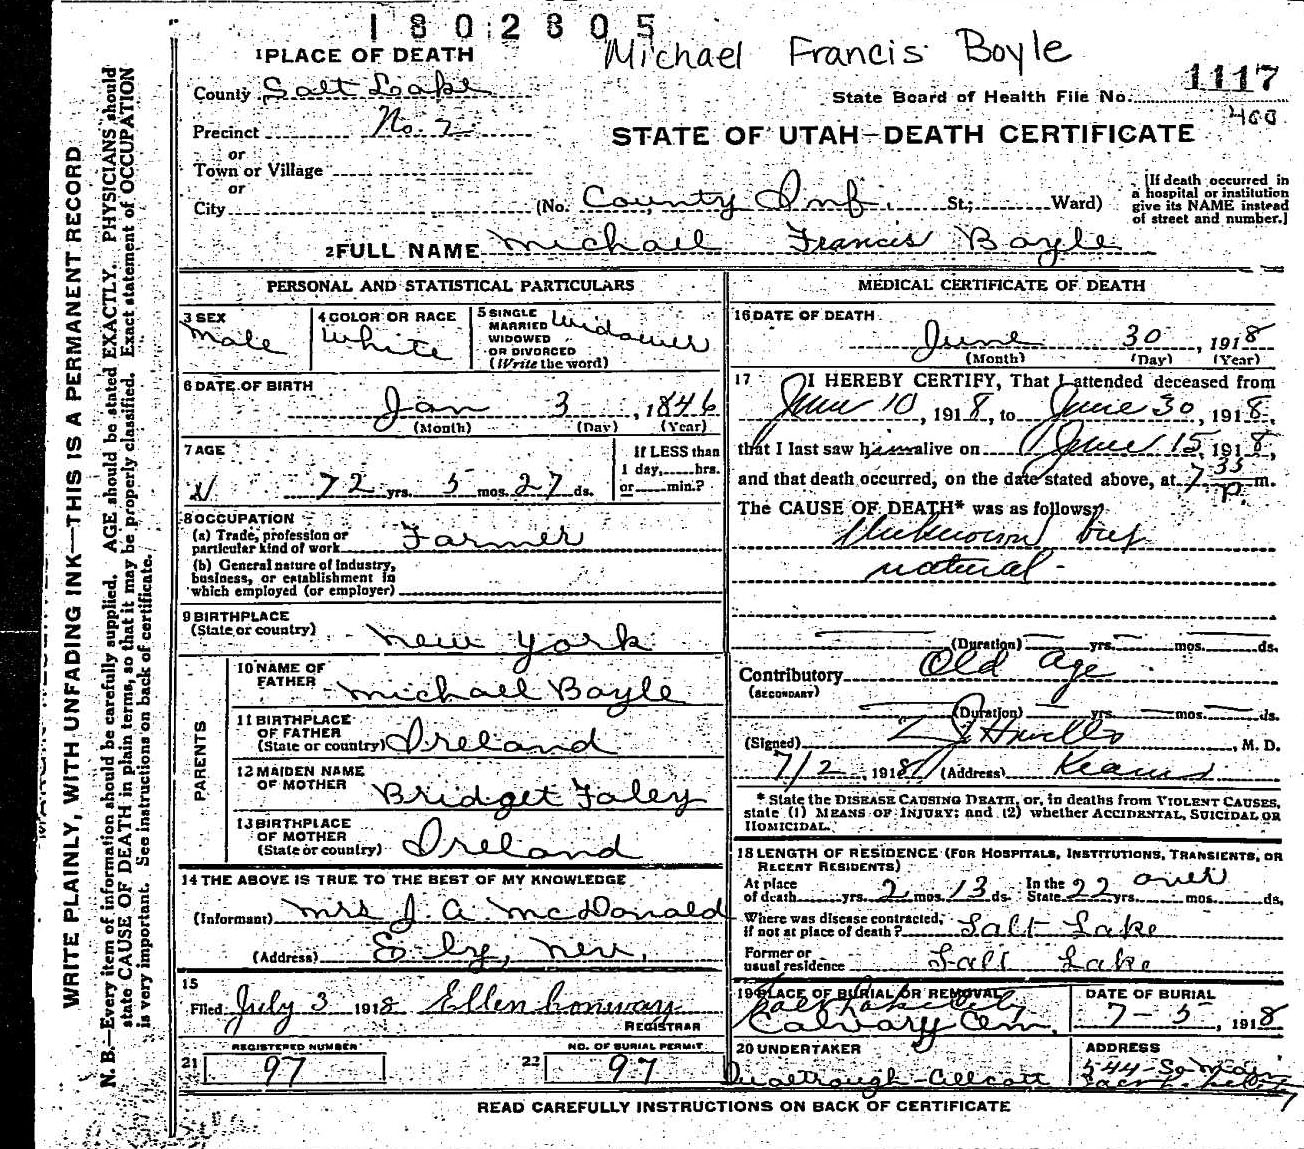 1802805
Michael Francis Boyle
1 PLACE OF DEATH
County Salt Lake
1117
State Board of Health File No.
400
Precinct No. 2
STATE OF UTAH—DEATH CERTIFICATE
or
Town or Village
or
City (No. County Inf. St.; Ward)
[If death occurred in
a hospital or institution
give its NAME instead
of street and number.]
2 FULL NAME Michael Francis Boyle
PERSONAL AND STATISTICAL PARTICULARS
3 SEX
Male
4 COLOR OR RACE
White
5 SINGLE
MARRIED
WIDOWED
OR DIVORCED
(Write the word)
Widower
6 DATE OF BIRTH
Jan 3, 1846
(Month) (Day) (Year)
7 AGE
72 yrs. 5 mos. 27 ds.
If LESS than
1 day,......hrs.
or......min.?
8 OCCUPATION
(a) Trade, profession or
particular kind of work Farmer
(b) General nature of Industry,
business, or establishment in
which employed (or employer)
9 BIRTHPLACE
(State or country) New York
PARENTS
10 NAME OF
FATHER Michael Boyle
11 BIRTHPLACE
OF FATHER
(State or country) Ireland
12 MAIDEN NAME
OF MOTHER Bridget Foley
13 BIRTHPLACE
OF MOTHER
(State or country) Ireland
14 THE ABOVE IS TRUE TO THE BEST OF MY KNOWLEDGE
(Informant) Mrs J. A. McDonald
(Address) Ely, Nev.
15
Filed July 3 1918 Ellen Conway
REGISTRAR
REGISTERED NUMBER
21 97
NO. OF BURIAL PERMIT
22 97
MEDICAL CERTIFICATE OF DEATH
16 DATE OF DEATH
June 30, 1918
(Month) (Day) (Year)
17 I HEREBY CERTIFY, That I attended deceased from
June 10, 1918, to June 30, 1918,
that I last saw him alive on June 15, 1918,
and that death occurred, on the date stated above, at 7 35 P. m.
The CAUSE OF DEATH* was as follows:
Unknown but
natural
(Duration) yrs. mos. ds.
Contributory Old age
(SECONDARY)
(Duration) yrs. mos. ds.
(Signed) , M. D.
7/2, 1918 (Address) Kearns
* State the DISEASE CAUSING DEATH, or, in deaths from VIOLENT CAUSES,
state (1) MEANS OF INJURY; and (2) whether ACCIDENTAL, SUICIDAL OR
HOMICIDAL.
18 LENGTH OF RESIDENCE (FOR HOSPITALS, INSTITUTIONS, TRANSIENTS, OR
RECENT RESIDENTS)
At place
of death yrs. 2 mos. 13 ds. In the
State 22 yrs. over mos. ds.
Where was disease contracted,
if not at place of death? Salt Lake
Former or
usual residence Salt Lake
19 PLACE OF BURIAL OR REMOVAL
Salt Lake City
Calvary Cem.
DATE OF BURIAL
7-5, 1918
20 UNDERTAKER
ADDRESS
544 So Main
Salt Lake City
READ CAREFULLY INSTRUCTIONS ON BACK OF CERTIFICATE
WRITE PLAINLY, WITH UNFADING INK—THIS IS A PERMANENT RECORD
N. B.—Every item of information should be carefully supplied. AGE should be stated EXACTLY. PHYSICIANS should
state CAUSE OF DEATH in plain terms, so that it may be properly classified. Exact statement of OCCUPATION
is very important. See instructions on back of certificate.